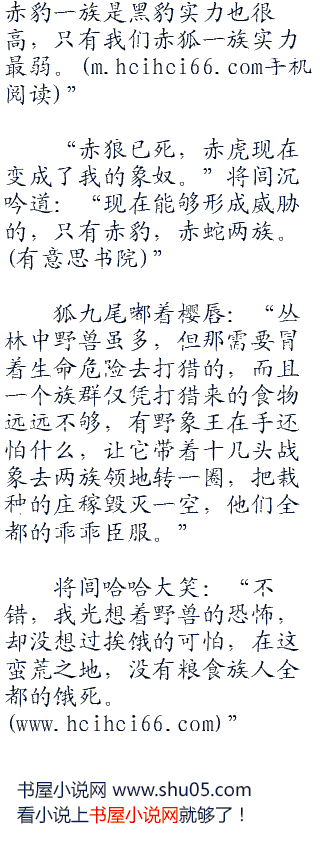 赤豹一族是黑豹实力也很
高，只有我们赤狐一族实力
最弱。(m.hcihci66.com手机
阅读)”
“赤狼已死，赤虎现在
变成了我的象奴。”将闾沉
吟道：“现在能够形成威胁
的，只有赤豹，赤蛇两族。
(有意思书院)”
狐九尾嘟着樱唇：“丛
林中野兽虽多，但那需要冒
着生命危险去打猎的，而且
一个族群仅凭打猎来的食物
远远不够，有野象王在手还
怕什么，让它带着十几头战
象去两族领地转一圈，把栽
种的庄稼毁灭一空，他们全
都的乖乖臣服。”
将闾哈哈大笑：“不
错，我光想着野兽的恐怖，
却没想过挨饿的可怕，在这
蛮荒之地，没有粮食族人全
都的饿死。
(www.hcihci66.com)”
书屋小说网 www.shu05.com
看小说上书屋小说网就够了！